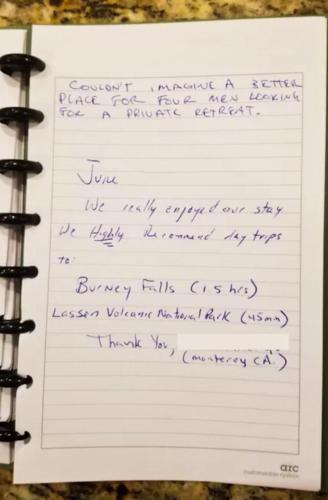 COULDN'T IMAGINE A BETTER
PLACE FOR FOUR MEN LOOKING
FOR A PRIVATE RETREAT.
June
We really enjoyed our stay
We Highly Recommend day trips
to:
Burney Falls (1.5 hrs)
Lassen Volcanic National Park (45min)
Thank You,
(Monterey CA.)
arc
customization system